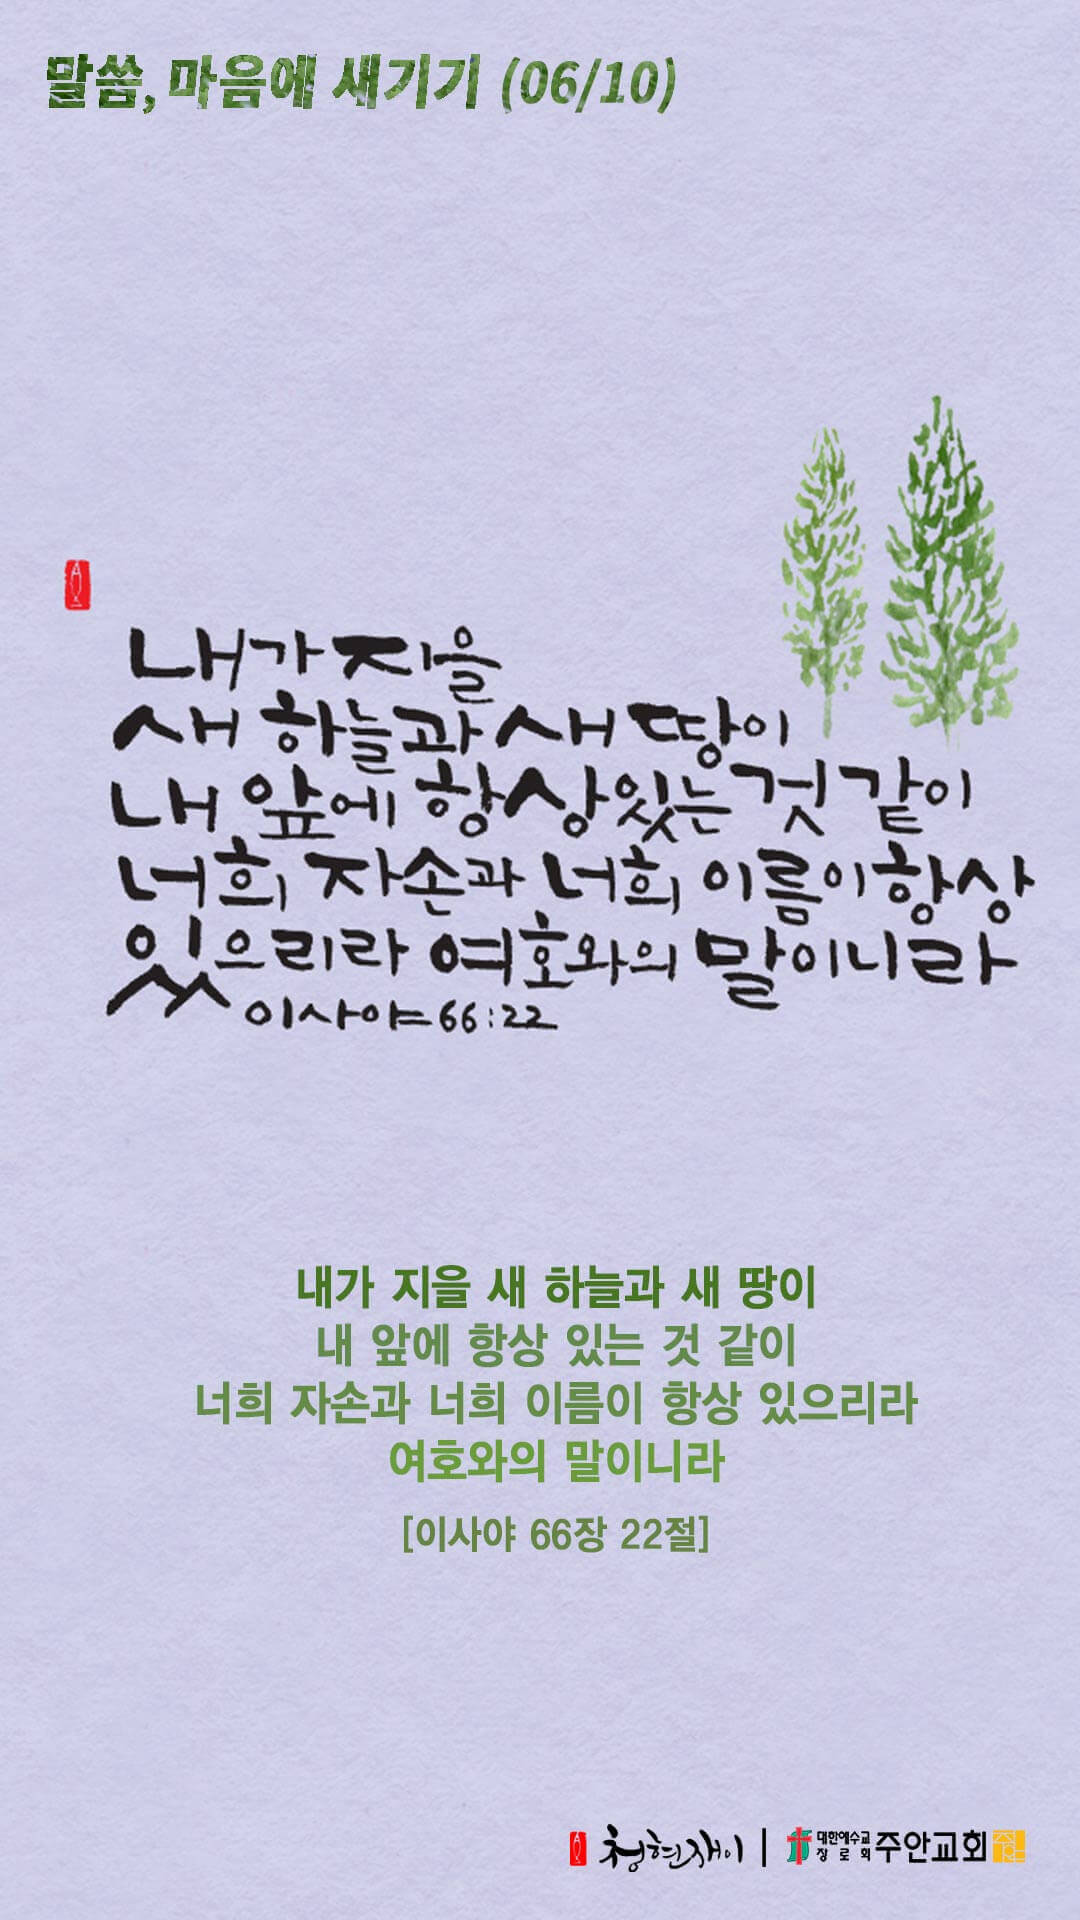 말씀, 마음에 새기기 (06/10)
내가 지을
새 하늘과 새 땅이
내 앞에 항상 있는 것 같이
너희 자손과 너희 이름이 항상
있으리라 여호와의 말이니라
이사야 66:22
내가 지을 새 하늘과 새 땅이
내 앞에 항상 있는 것 같이
너희 자손과 너희 이름이 항상 있으리라
여호와의 말이니라
[이사야 66장 22절]
청현재이 | 대한예수교 장로회 주안교회